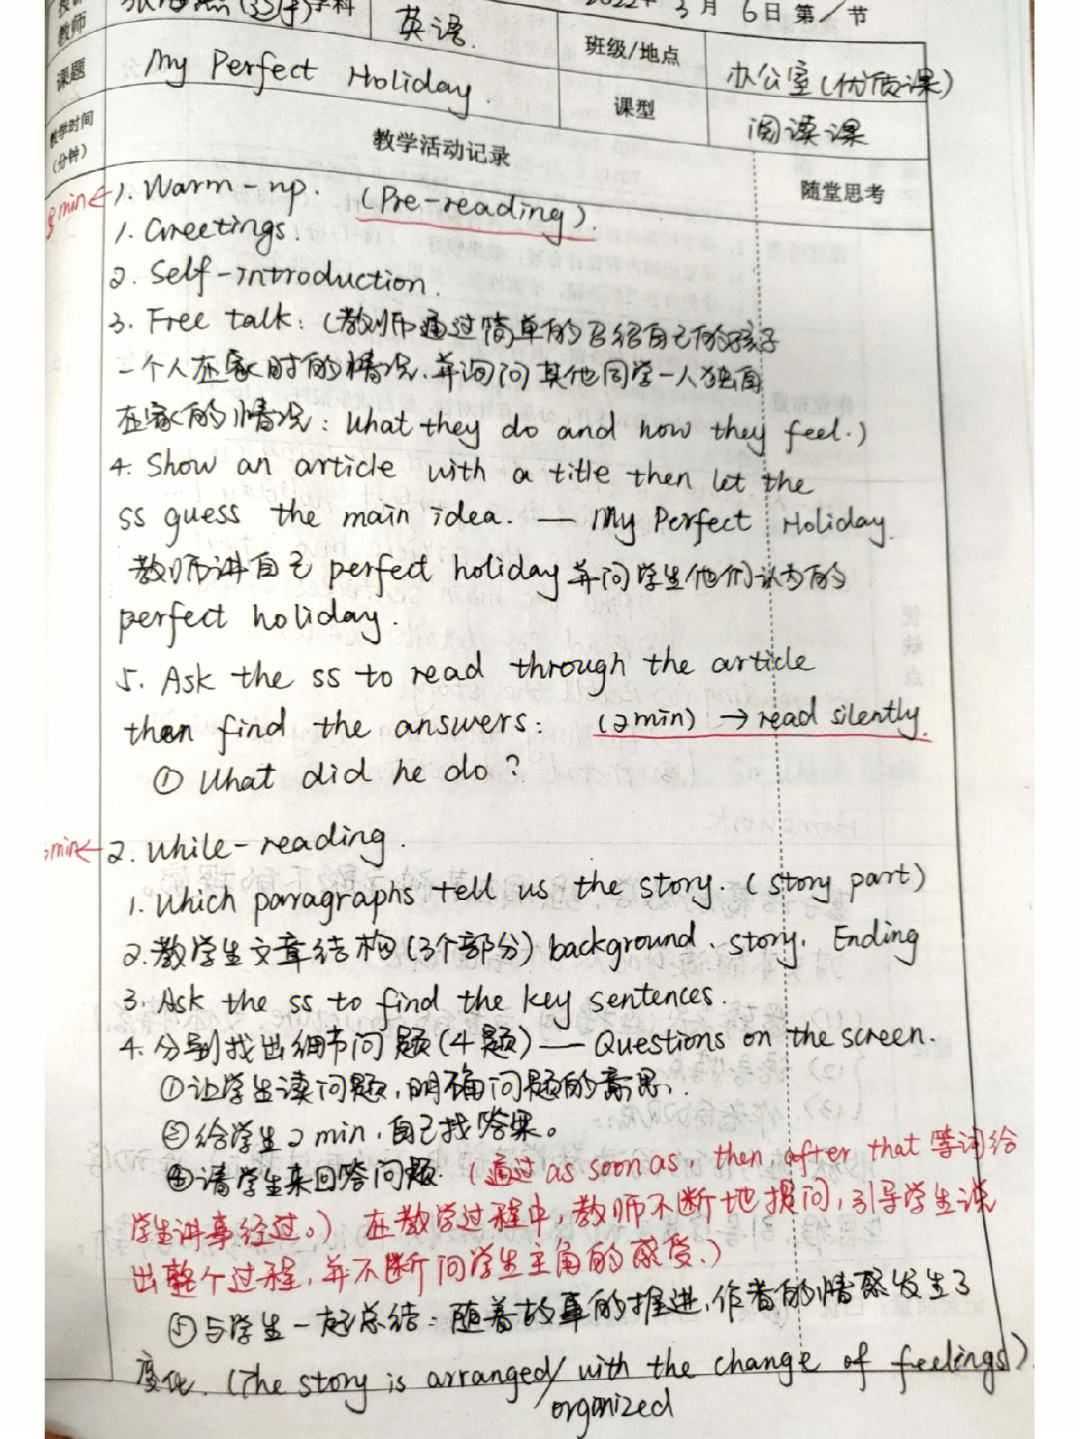 教师
学科
英语.
2022年3月6日第1节
课题
My Perfect Holiday.
班级/地点
办公室(优质课)
课型
阅读课
教学时间
(分钟)
教学活动记录
随堂思考
min←
1. Warm-up. (Pre-reading).
1. Greetings.
2. Self-introduction.
3. Free talk: (教师通过简单的召绍自己的孩子
一个人在家时的情况,并询问其他同学一人独自
在家的情况: What they do and how they feel.)
4. Show an article with a title then let the
ss guess the main idea. — My Perfect Holiday.
教师讲自己 perfect holiday 并问学生他们认为的
perfect holiday.
5. Ask the ss to read through the article
then find the answers: (2min) → read silently.
① What did he do?
min←
2. While-reading.
1. Which paragraphs tell us the story. (story part)
2. 教学生文章结构(3个部分) background、story、Ending
3. Ask the ss to find the key sentences.
4. 分别找出细节问题(4题) — Questions on the screen.
①让学生读问题,明确问题的意思.
②给学生2min,自己找答案。
④请学生来回答问题. (通过 as soon as, then, after that 等词给
学生讲事经过。) 在教学过程中,教师不断地提问,引导学生说
出整个过程,并不断问学生主角的感受.)
⑤与学生一起总结: 随着故事的推进,作者的情感发生了
变化. (The story is arranged/ with the change of feelings).
organized